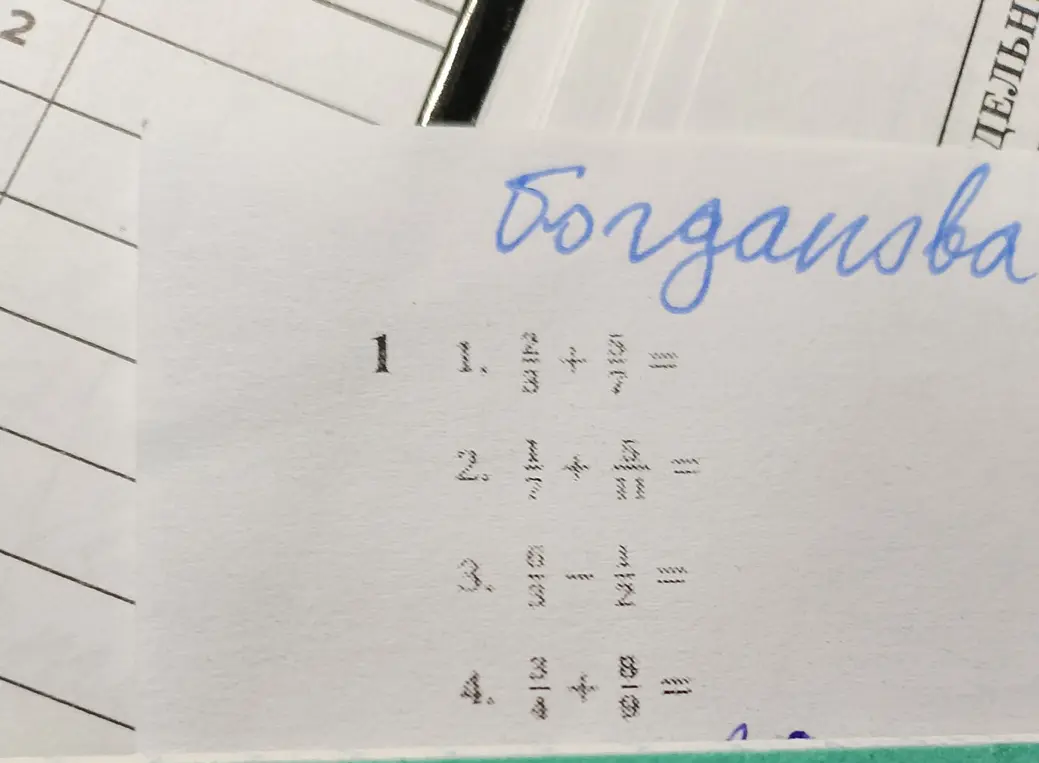 2
ДЕЛЬН
Богданова
1 1. 2/3 + 5/7 =
2. 1/7 + 5/11 =
3. - 1/2 =
4. 3/4 + 8/9 =